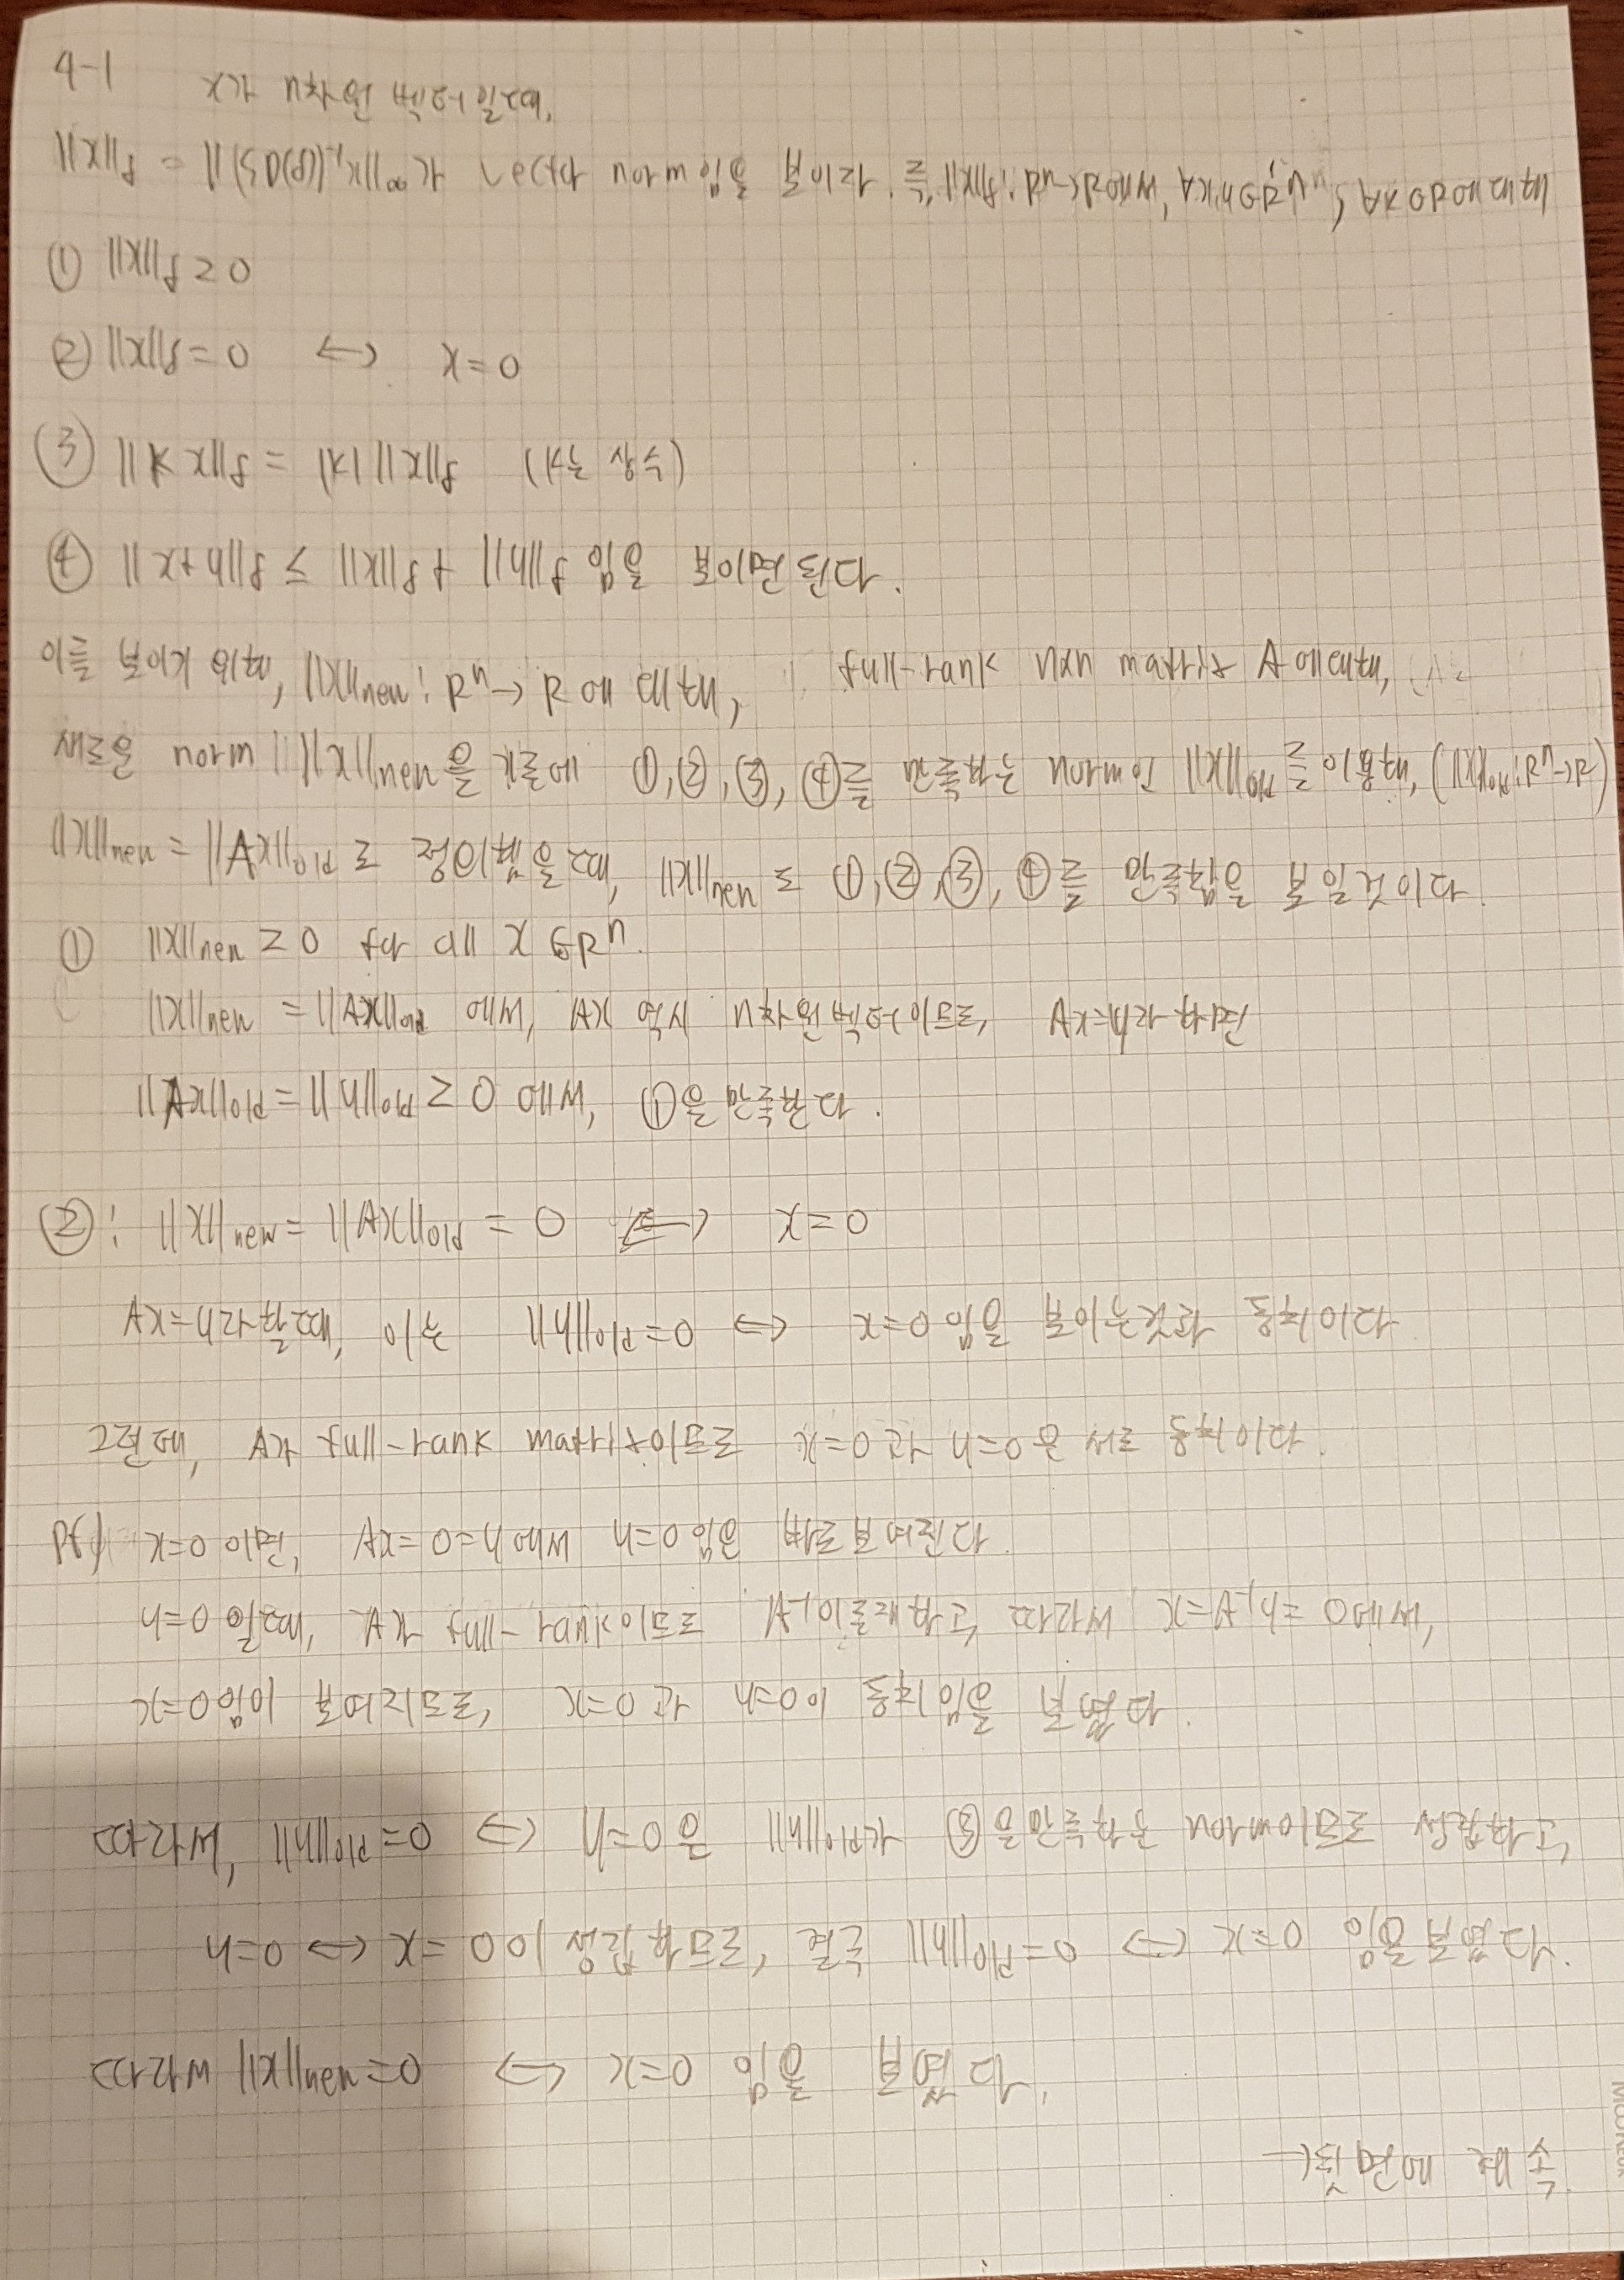 4-1 x가 n차원 벡터일때,
||x||_f = ||(SD(D))^{-1}x||_∞가 vector norm임을 보이라. 즉, ||x||_f: R^n→R
① ||x||_f ≥ 0
② ||x||_f = 0 ↔ x=0
③ ||kx||_f = |k| ||x||_f (k는 상수)
④ ||x+y||_f ≤ ||x||_f + ||y||_f 임을 보이면 된다.
이를 보이기 위해, ||x||_new: R^n → R에 대해, full-rank nxn matrix A에 대해,
새로운 norm ||x||_new을 기존에 ①, ②, ③, ④를 만족하는 norm인 ||x||_old를 이용해, (||x||_old: R^n→R)
||x||_new = ||Ax||_old로 정의했을때, ||x||_new도 ①, ②, ③, ④를 만족함을 보일것이다.
① ||x||_new ≥ 0 for all x ∈ R^n.
||x||_new = ||Ax||_old 에서, Ax 역시 n차원벡터이므로, Ax=y라 하면
||Ax||_old = ||y||_old ≥ 0 에서, ①을 만족한다.
②: ||x||_new = ||Ax||_old = 0 ↔ x=0
Ax=y라할때, 이는 ||y||_old=0 ↔ x=0임을 보이는것과 동치이다
그런데, A가 full-rank matrix이므로 x=0과 y=0은 서로 동치이다.
pf) x=0이면, Ax=0=y에서 y=0임은 바로보여진다.
y=0일때, A가 full-rank이므로 A^{-1}이존재하고, 따라서 x=A^{-1}y=0에서,
x=0임이 보여지므로, x=0과 y=0이 동치임을 보였다.
따라서, ||y||_old=0 ↔ y=0은 ||y||_old가 ②을만족하는 norm이므로 성립하고,
y=0 ↔ x=0이 성립하므로, 결국 ||y||_old=0 ↔ x=0임을보였다.
따라서 ||x||_new=0 ↔ x=0 임을 보였다.
→뒷면에 계속